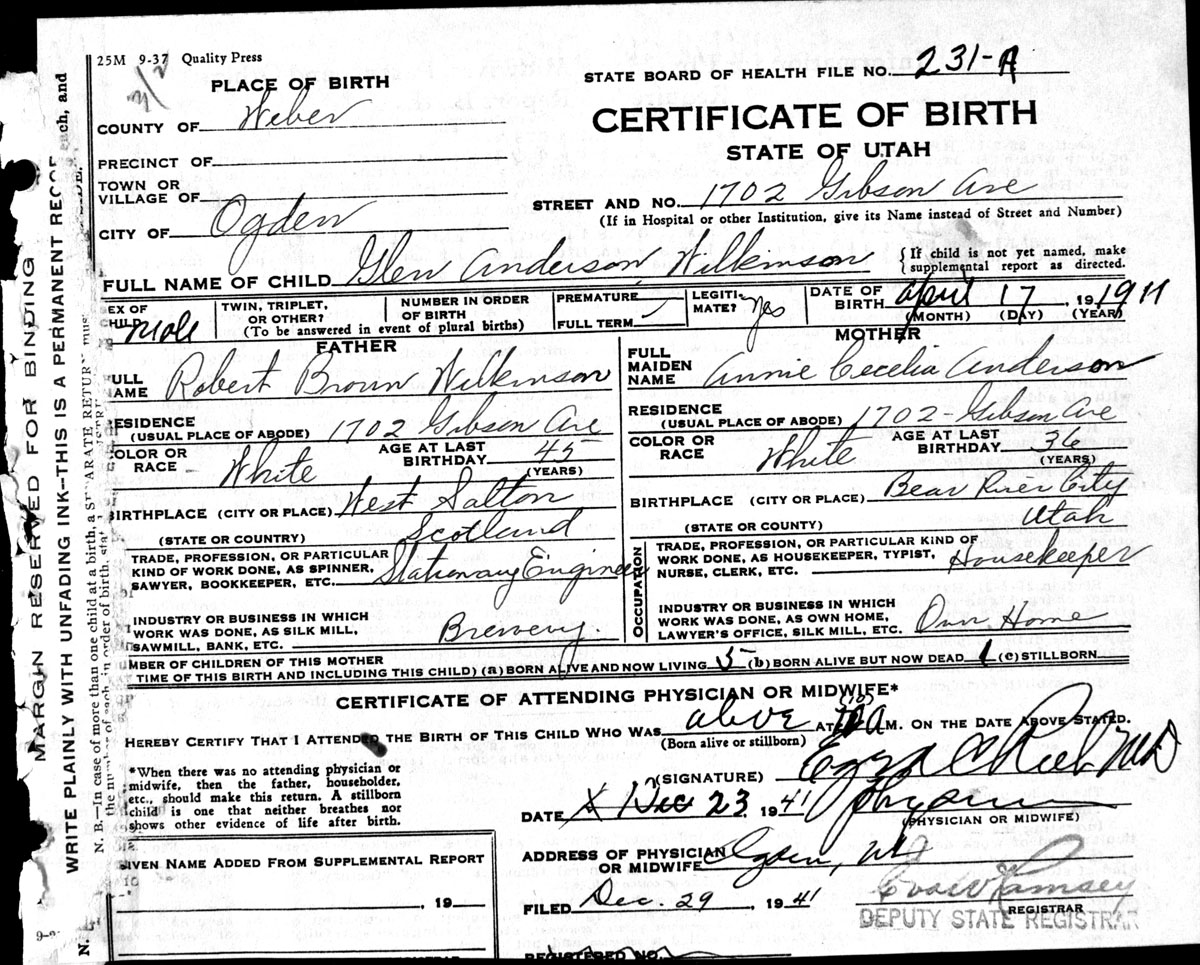 25M 9-37 Quality Press
PLACE OF BIRTH
STATE BOARD OF HEALTH FILE NO. 231-A
COUNTY OF Weber
CERTIFICATE OF BIRTH
PRECINCT OF
STATE OF UTAH
TOWN OR
VILLAGE OF
STREET AND NO. 1702 Gibson Ave
(If in Hospital or other Institution, give its Name instead of Street and Number)
CITY OF Ogden
FULL NAME OF CHILD Glen Anderson Wilkinson
{If child is not yet named, make
supplemental report as directed.
SEX OF
CHILD Male
TWIN, TRIPLET,
OR OTHER?
NUMBER IN ORDER
OF BIRTH
(To be answered in event of plural births)
PREMATURE
FULL TERM
LEGITI-
MATE? Yes
DATE OF
BIRTH April 17, 19 1911
(MONTH) (DAY) (YEAR)
FATHER
FULL
NAME Robert Brown Wilkinson
RESIDENCE
(USUAL PLACE OF ABODE) 1702 Gibson Ave
COLOR OR
RACE White
AGE AT LAST
BIRTHDAY 45
(YEARS)
BIRTHPLACE (CITY OR PLACE) West Salton
(STATE OR COUNTRY) Scotland
TRADE, PROFESSION, OR PARTICULAR
KIND OF WORK DONE, AS SPINNER,
SAWYER, BOOKKEEPER, ETC. Stationary Engineer
INDUSTRY OR BUSINESS IN WHICH
WORK WAS DONE, AS SILK MILL,
SAWMILL, BANK, ETC. Brewery.
MOTHER
FULL
MAIDEN
NAME Annie Cecelia Anderson
RESIDENCE
(USUAL PLACE OF ABODE) 1702 - Gibson Ave
COLOR OR
RACE White
AGE AT LAST
BIRTHDAY 36
(YEARS)
BIRTHPLACE (CITY OR PLACE) Bear River City
(STATE OR COUNTY) Utah
OCCUPATION
TRADE, PROFESSION, OR PARTICULAR KIND OF
WORK DONE, AS HOUSEKEEPER, TYPIST,
NURSE, CLERK, ETC. Housekeeper
INDUSTRY OR BUSINESS IN WHICH
WORK WAS DONE, AS OWN HOME,
LAWYER'S OFFICE, SILK MILL, ETC. Own Home
MBER OF CHILDREN OF THIS MOTHER
TIME OF THIS BIRTH AND INCLUDING THIS CHILD) (a) BORN ALIVE AND NOW LIVING 5 (b) BORN ALIVE BUT NOW DEAD 1 (c) STILLBORN
CERTIFICATE OF ATTENDING PHYSICIAN OR MIDWIFE*
HEREBY CERTIFY THAT I ATTENDED THE BIRTH OF THIS CHILD WHO WAS alive AT A M. ON THE DATE ABOVE STATED.
(Born alive or stillborn)
*When there was no attending physician or
midwife, then the father, householder,
etc., should make this return. A stillborn
child is one that neither breathes nor
shows other evidence of life after birth.
(SIGNATURE) Ezra C Rich MD
DATE Dec 23 19 41
(PHYSICIAN OR MIDWIFE)
ADDRESS OF PHYSICIAN
OR MIDWIFE Ogden,
GIVEN NAME ADDED FROM SUPPLEMENTAL REPORT
, 19
FILED Dec. 29, 19 41
Ramsey
REGISTRAR
DEPUTY STATE REGISTRAR
REGISTERED NO.
MARGIN RESERVED FOR BINDING
WRITE PLAINLY WITH UNFADING INK—THIS IS A PERMANENT RECOR
N. B.—In case of more than one child at a birth, a SEPARATE RETURN mus
each, and
the number of each, in order of birth, stat